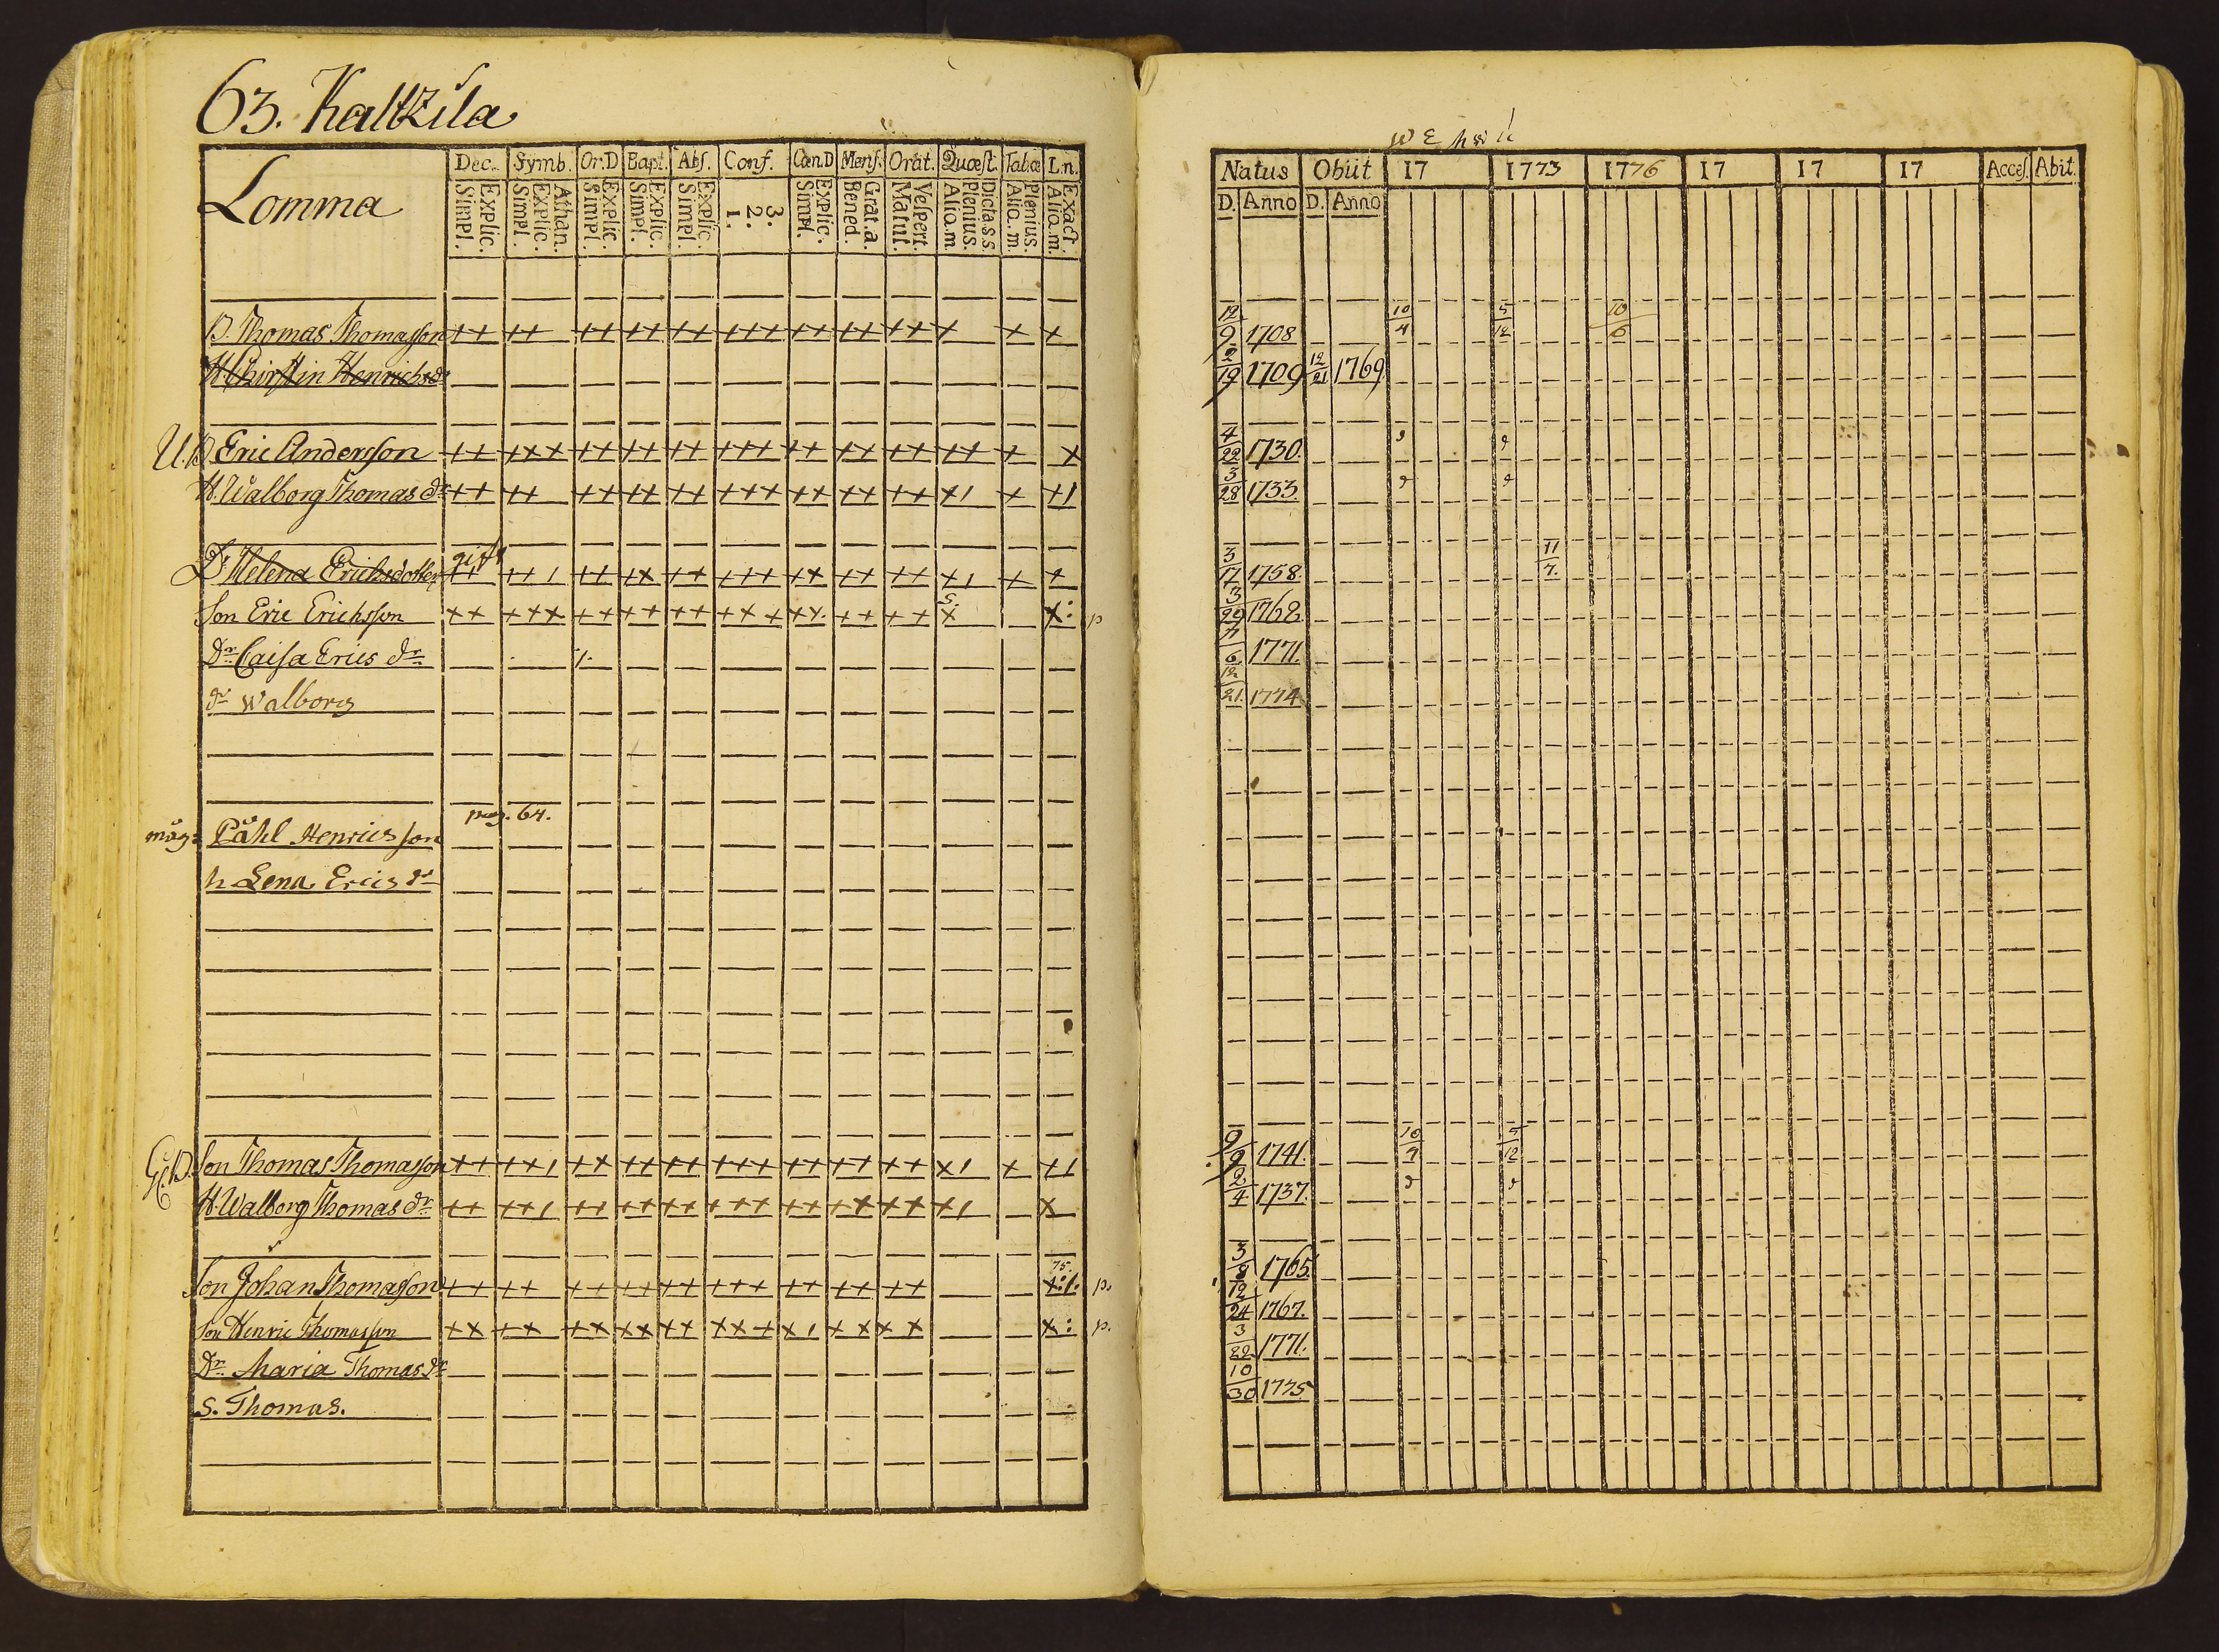 63. Kaltzila
Lomma
Dec. Symb. Or.D Bapt. Abs. Conf. Cœn.D Mens. Orat. Quæst. Tab.œ L.n.
Explic. Simpl. Athan. Explic. Simpl. Explic. Simpl. Explic. Simpl. Explic. Simpl. 3. 2. 1. Explic. Simpl. Grat.a. Bened. Vespert. Matut. Dicta s.s. Plenius. Alio.m. Plenius. Alio.m. Exact. Alio.m.
B. Thomas Thomasson ++ ++ ++ ++ ++ +++ ++ ++ ++ + + +
H. Chirstin Henrichsdr
U.B Eric Andersson ++ +++ ++ ++ ++ +++ ++ ++ ++ ++ + +
H. Walborg Thomas dr ++ ++ ++ ++ ++ +++ ++ ++ ++ +1 + +1
gift
Dr Helena Erichsdotter ++ ++1 ++ ++ ++ +++ ++ ++ ++ +1 + +
Son Eric Erichsson ++ +++ ++ ++ ++ +++ ++ ++ ++ + +: p
Dr. Caisa Erics dr.
dr Walborg
pag. 64.
måg: Påhl Henricsson
h Lena Erics dr
G.B. Son Thomas Thomasson ++ ++1 ++ ++ ++ +++ ++ ++ ++ +1 + +1
H. Walborg Thomas dr. ++ ++1 ++ ++ ++ +++ ++ ++ ++ +1 +
75.
Son Johan Thomasson ++ ++ ++ ++ ++ +++ ++ ++ ++ +:/: p.
Son Henric Thomasson ++ ++ ++ ++ ++ +++ +1 ++ ++ +: p.
Dr. Maria Thomas dr
S. Thomas.
Natus Obiit 17 1773 1776 17 17 17 Acces. Abit.
D. Anno D. Anno
12/9 1708 10/4 5/12 10/6
2/19 1709 12/21 1769
4/22 1730.
3/28 1733.
3/17 1758. 11/7.
3/29 1768
7/6 1771.
12/21. 1774
9/9 1741. 10/4 5/12
2/4 1737.
3/8 1765.
12/24 1767.
3/22 1771.
10/30 1775